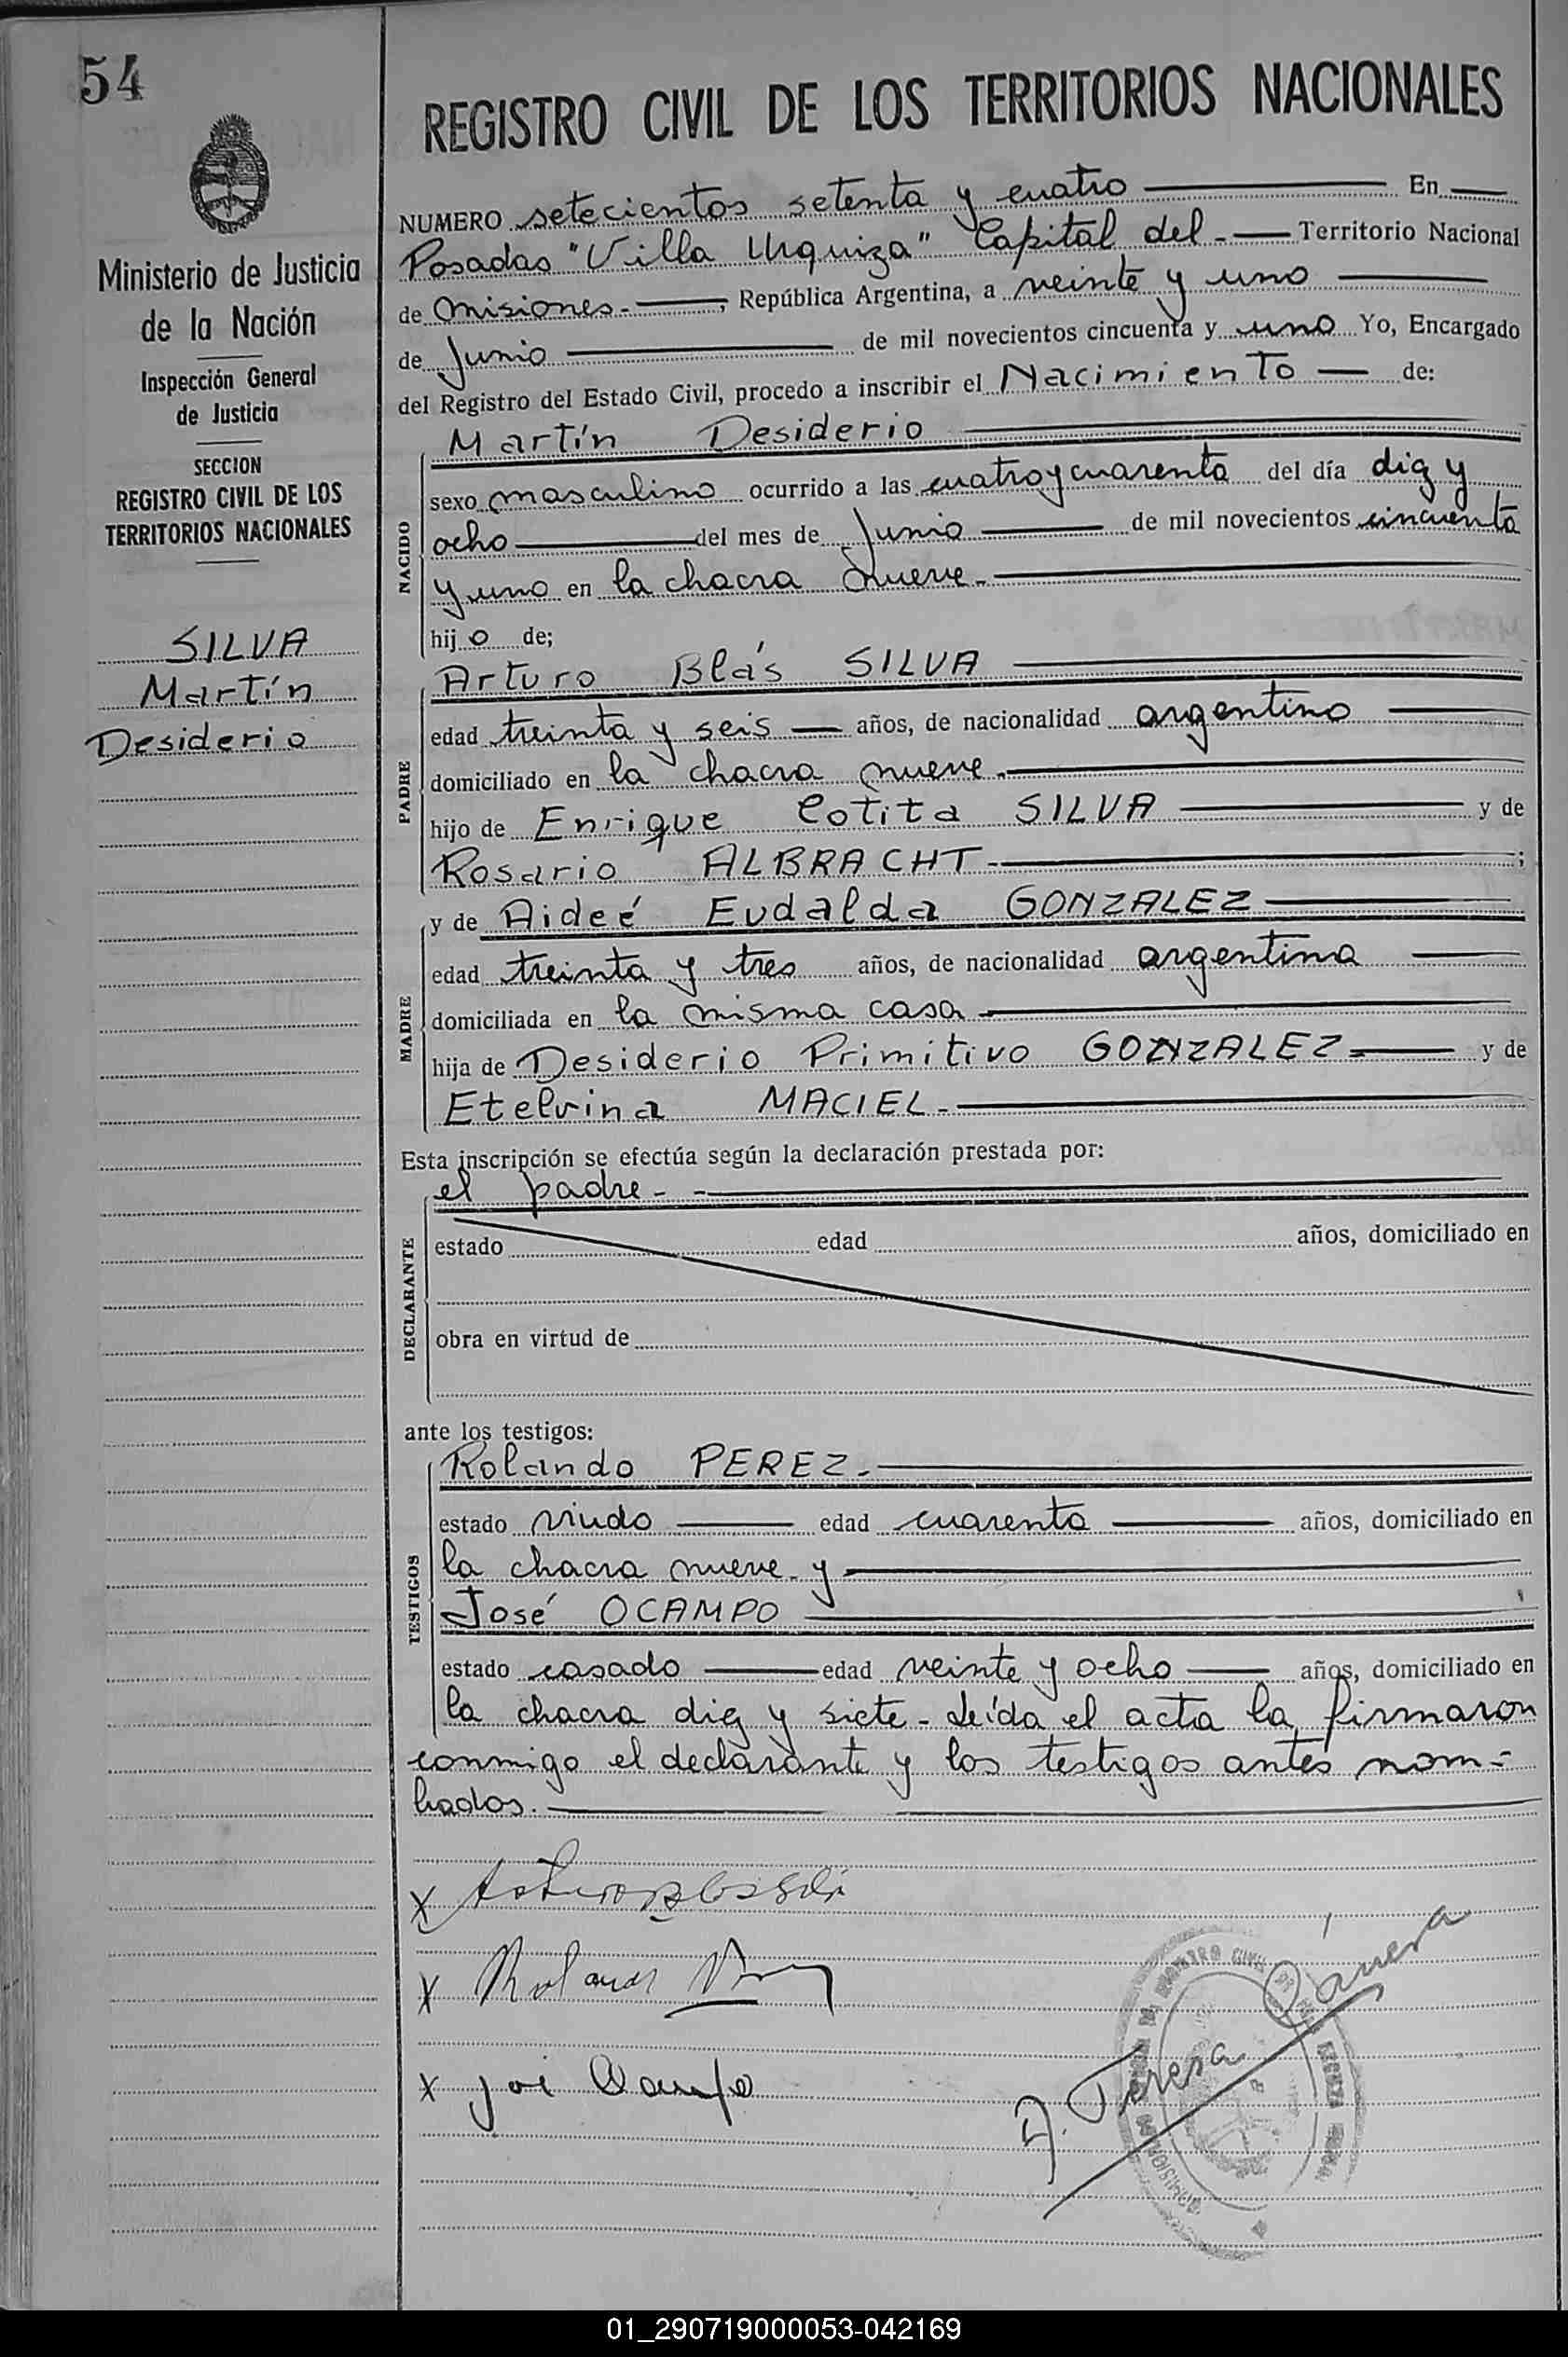 54
Ministerio de Justicia
de la Nación
Inspección General
de Justicia
SECCION
REGISTRO CIVIL DE LOS
TERRITORIOS NACIONALES
SILVA
Martín
Desiderio
REGISTRO CIVIL DE LOS TERRITORIOS NACIONALES
NUMERO setecientos setenta y cuatro En
Posadas "Villa Urquiza" Capital del - Territorio Nacional
de Misiones.- , República Argentina, a veinte y uno
de Junio de mil novecientos cincuenta y uno Yo, Encargado
del Registro del Estado Civil, procedo a inscribir el Nacimiento de:
NACIDO
Martín Desiderio
sexo masculino ocurrido a las cuatro y cuarenta del día diez y
ocho del mes de Junio de mil novecientos cincuenta
y uno en la chacra nueve.-
hijo de;
PADRE
Arturo Blás SILVA
edad treinta y seis años, de nacionalidad argentino
domiciliado en la chacra nueve.-
hijo de Enrique Cotita SILVA y de
Rosario ALBRACHT- ;
MADRE
y de Aideé Eudalda GONZALEZ
edad treinta y tres años, de nacionalidad argentina
domiciliada en la misma casa
hija de Desiderio Primitivo GONZALEZ y de
Etelvina MACIEL.-
Esta inscripción se efectúa según la declaración prestada por:
DECLARANTE
el padre.-
estado edad años, domiciliado en
obra en virtud de
ante los testigos:
TESTIGOS
Rolando PEREZ.-
estado viudo edad cuarenta años, domiciliado en
la chacra nueve y
José OCAMPO
estado casado edad veinte y ocho años, domiciliado en
la chacra diez y siete - Leída el acta la firmaron
conmigo el declarante y los testigos antes nom-
brados.-
x Arturo Blas Silva
x Rolando Perez
x José Ocampo
Teresa
01_290719000053-042169